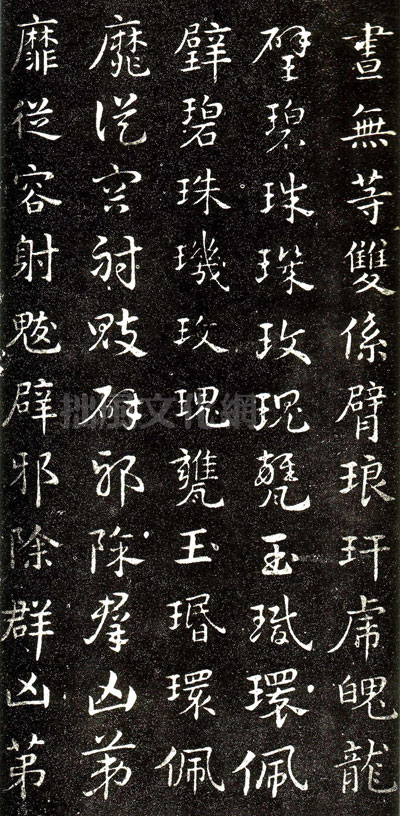 畫無等雙係臂琅玕虎魄龍
璧碧珠璣玫瑰甕玉環佩
璧碧珠璣玫瑰甕玉環佩
靡從容射鬾辟邪除群凶第
靡從容射鬾辟邪除群凶第
拙風文化網